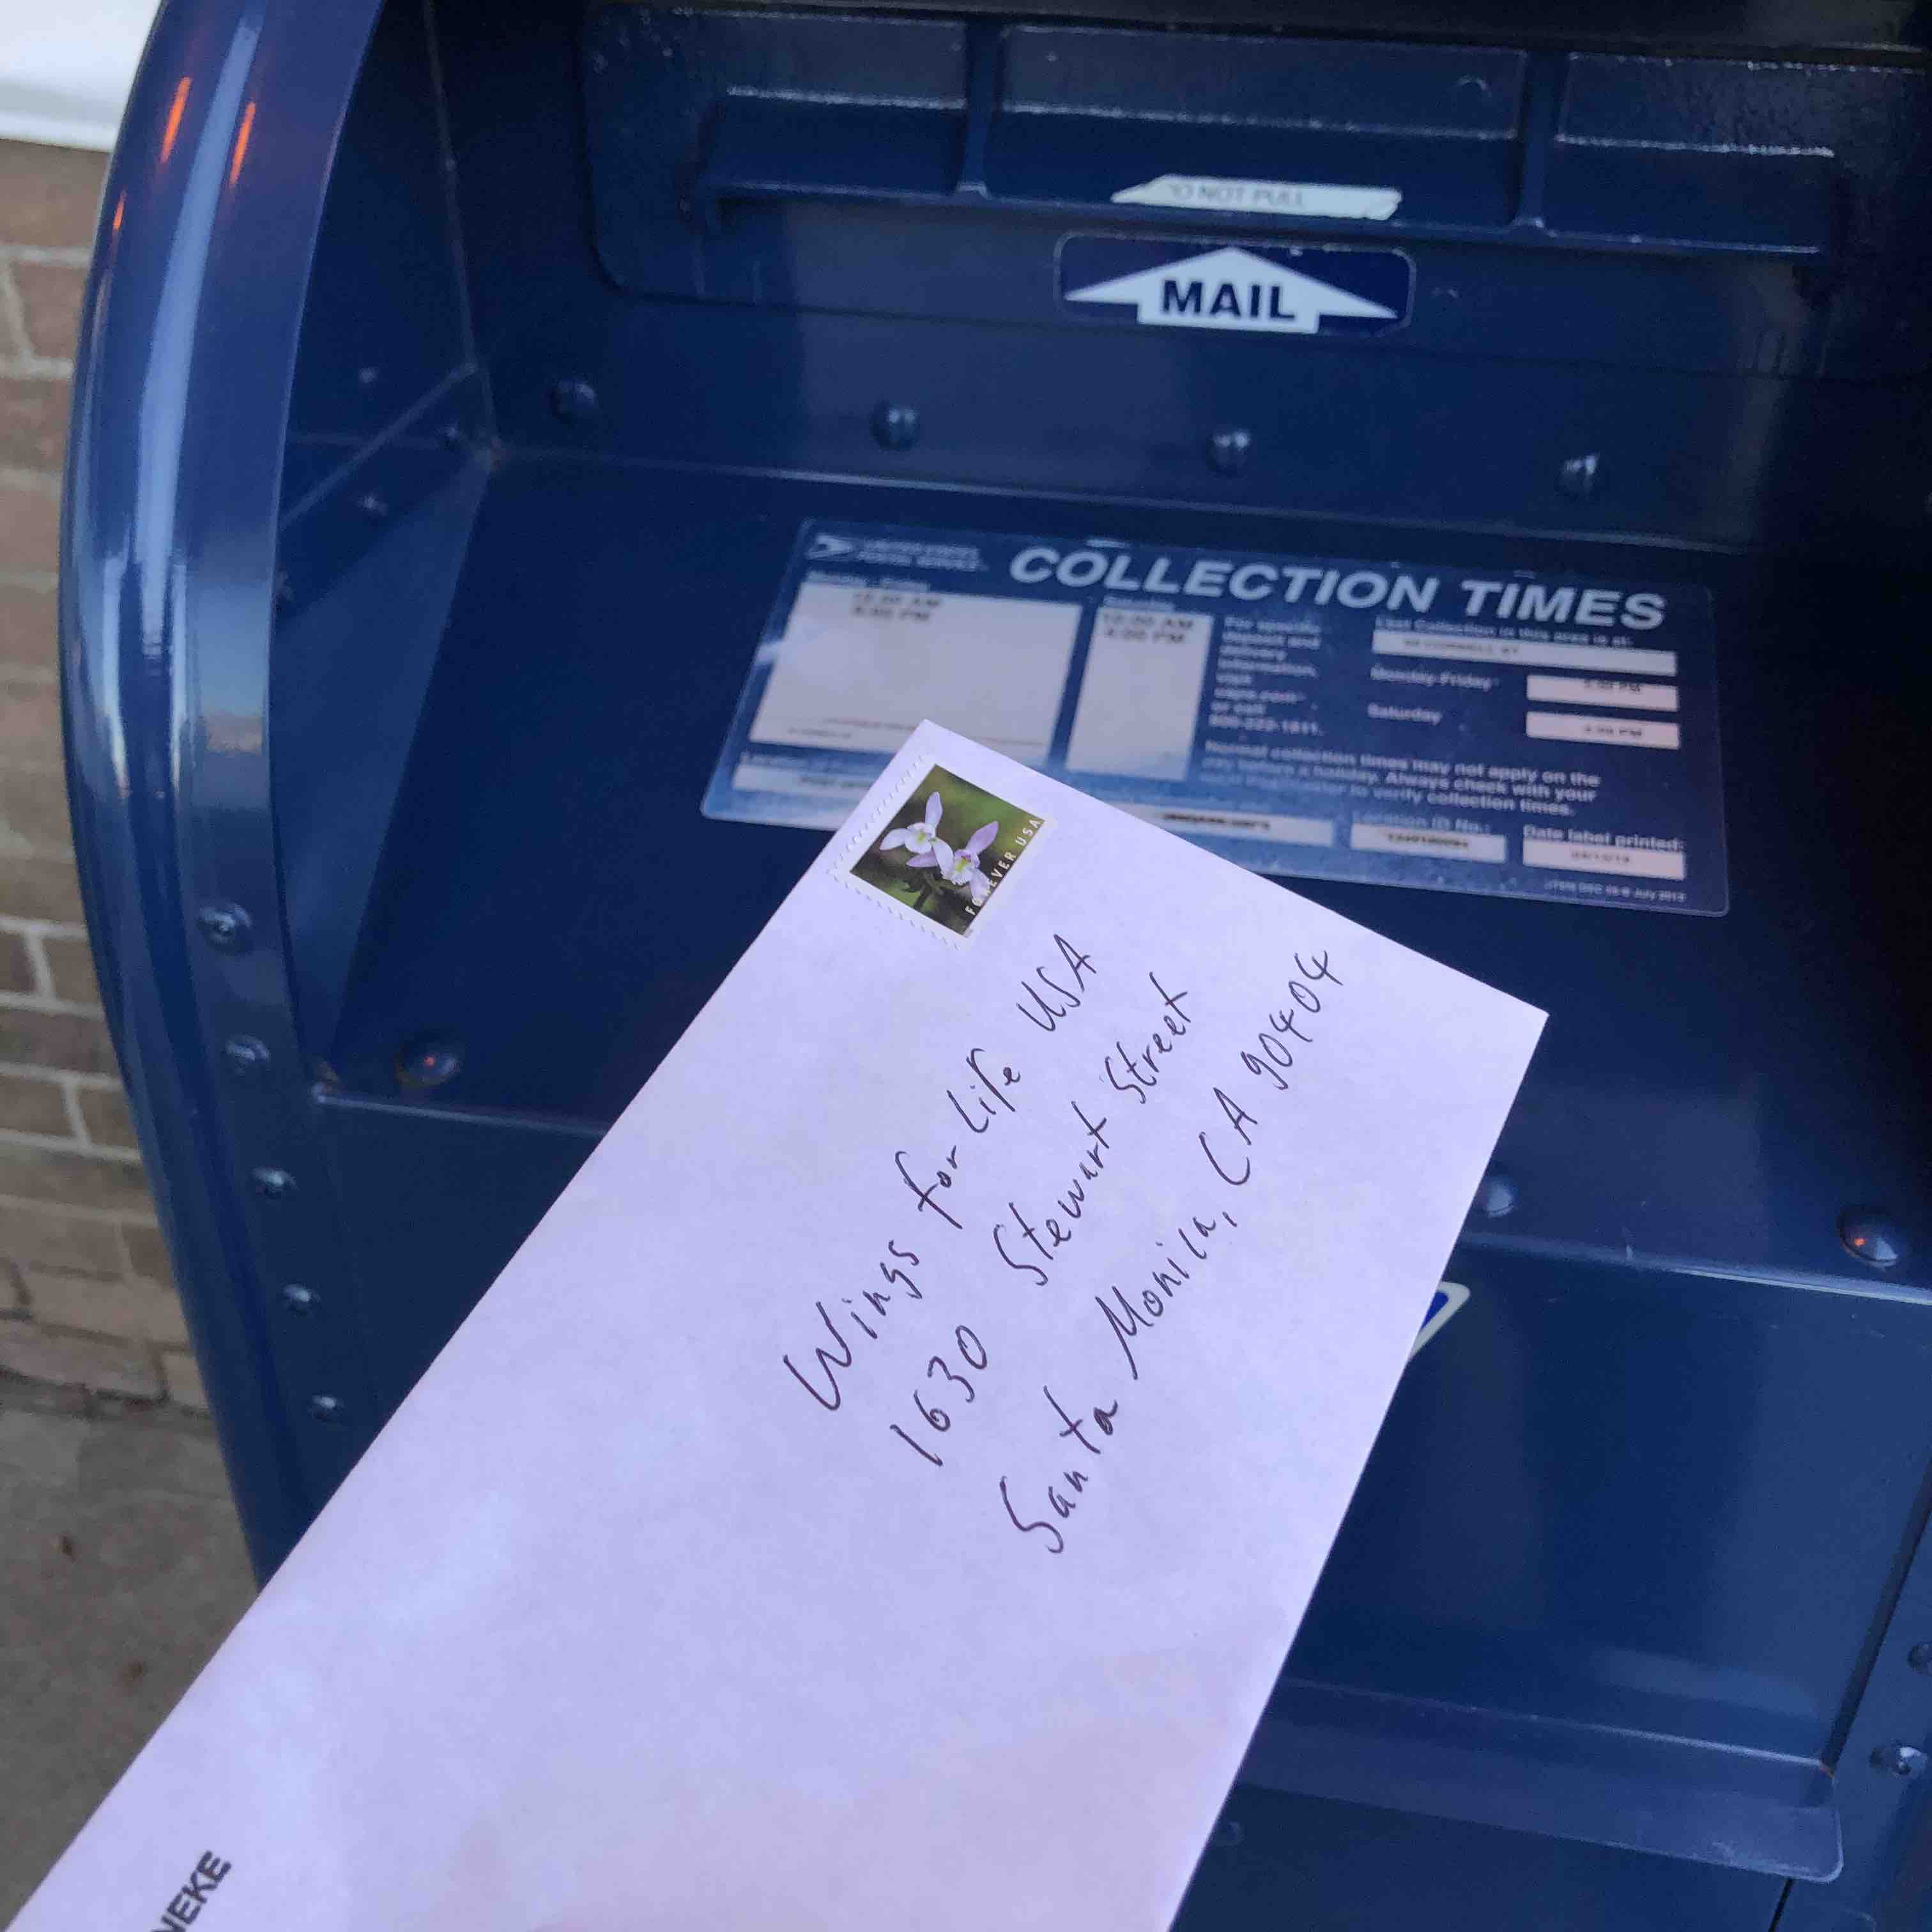 DO NOT PULL
MAIL
UNITED STATES
POSTAL SERVICE
COLLECTION TIMES
Saturday
10:00 AM
4:00 PM
For specific
deposit and
delivery
information,
visit
usps.com
or call
800-222-1811.
Last Collection in this area is at:
Monday-Friday
Saturday
Normal collection times may not apply on the
day before a holiday. Always check with your
to verify collection times.
Location ID No.:
Date label printed:
July 2013
FOREVER USA
Wings for Life USA
1630 Stewart Street
Santa Monica, CA 90404
NEKE